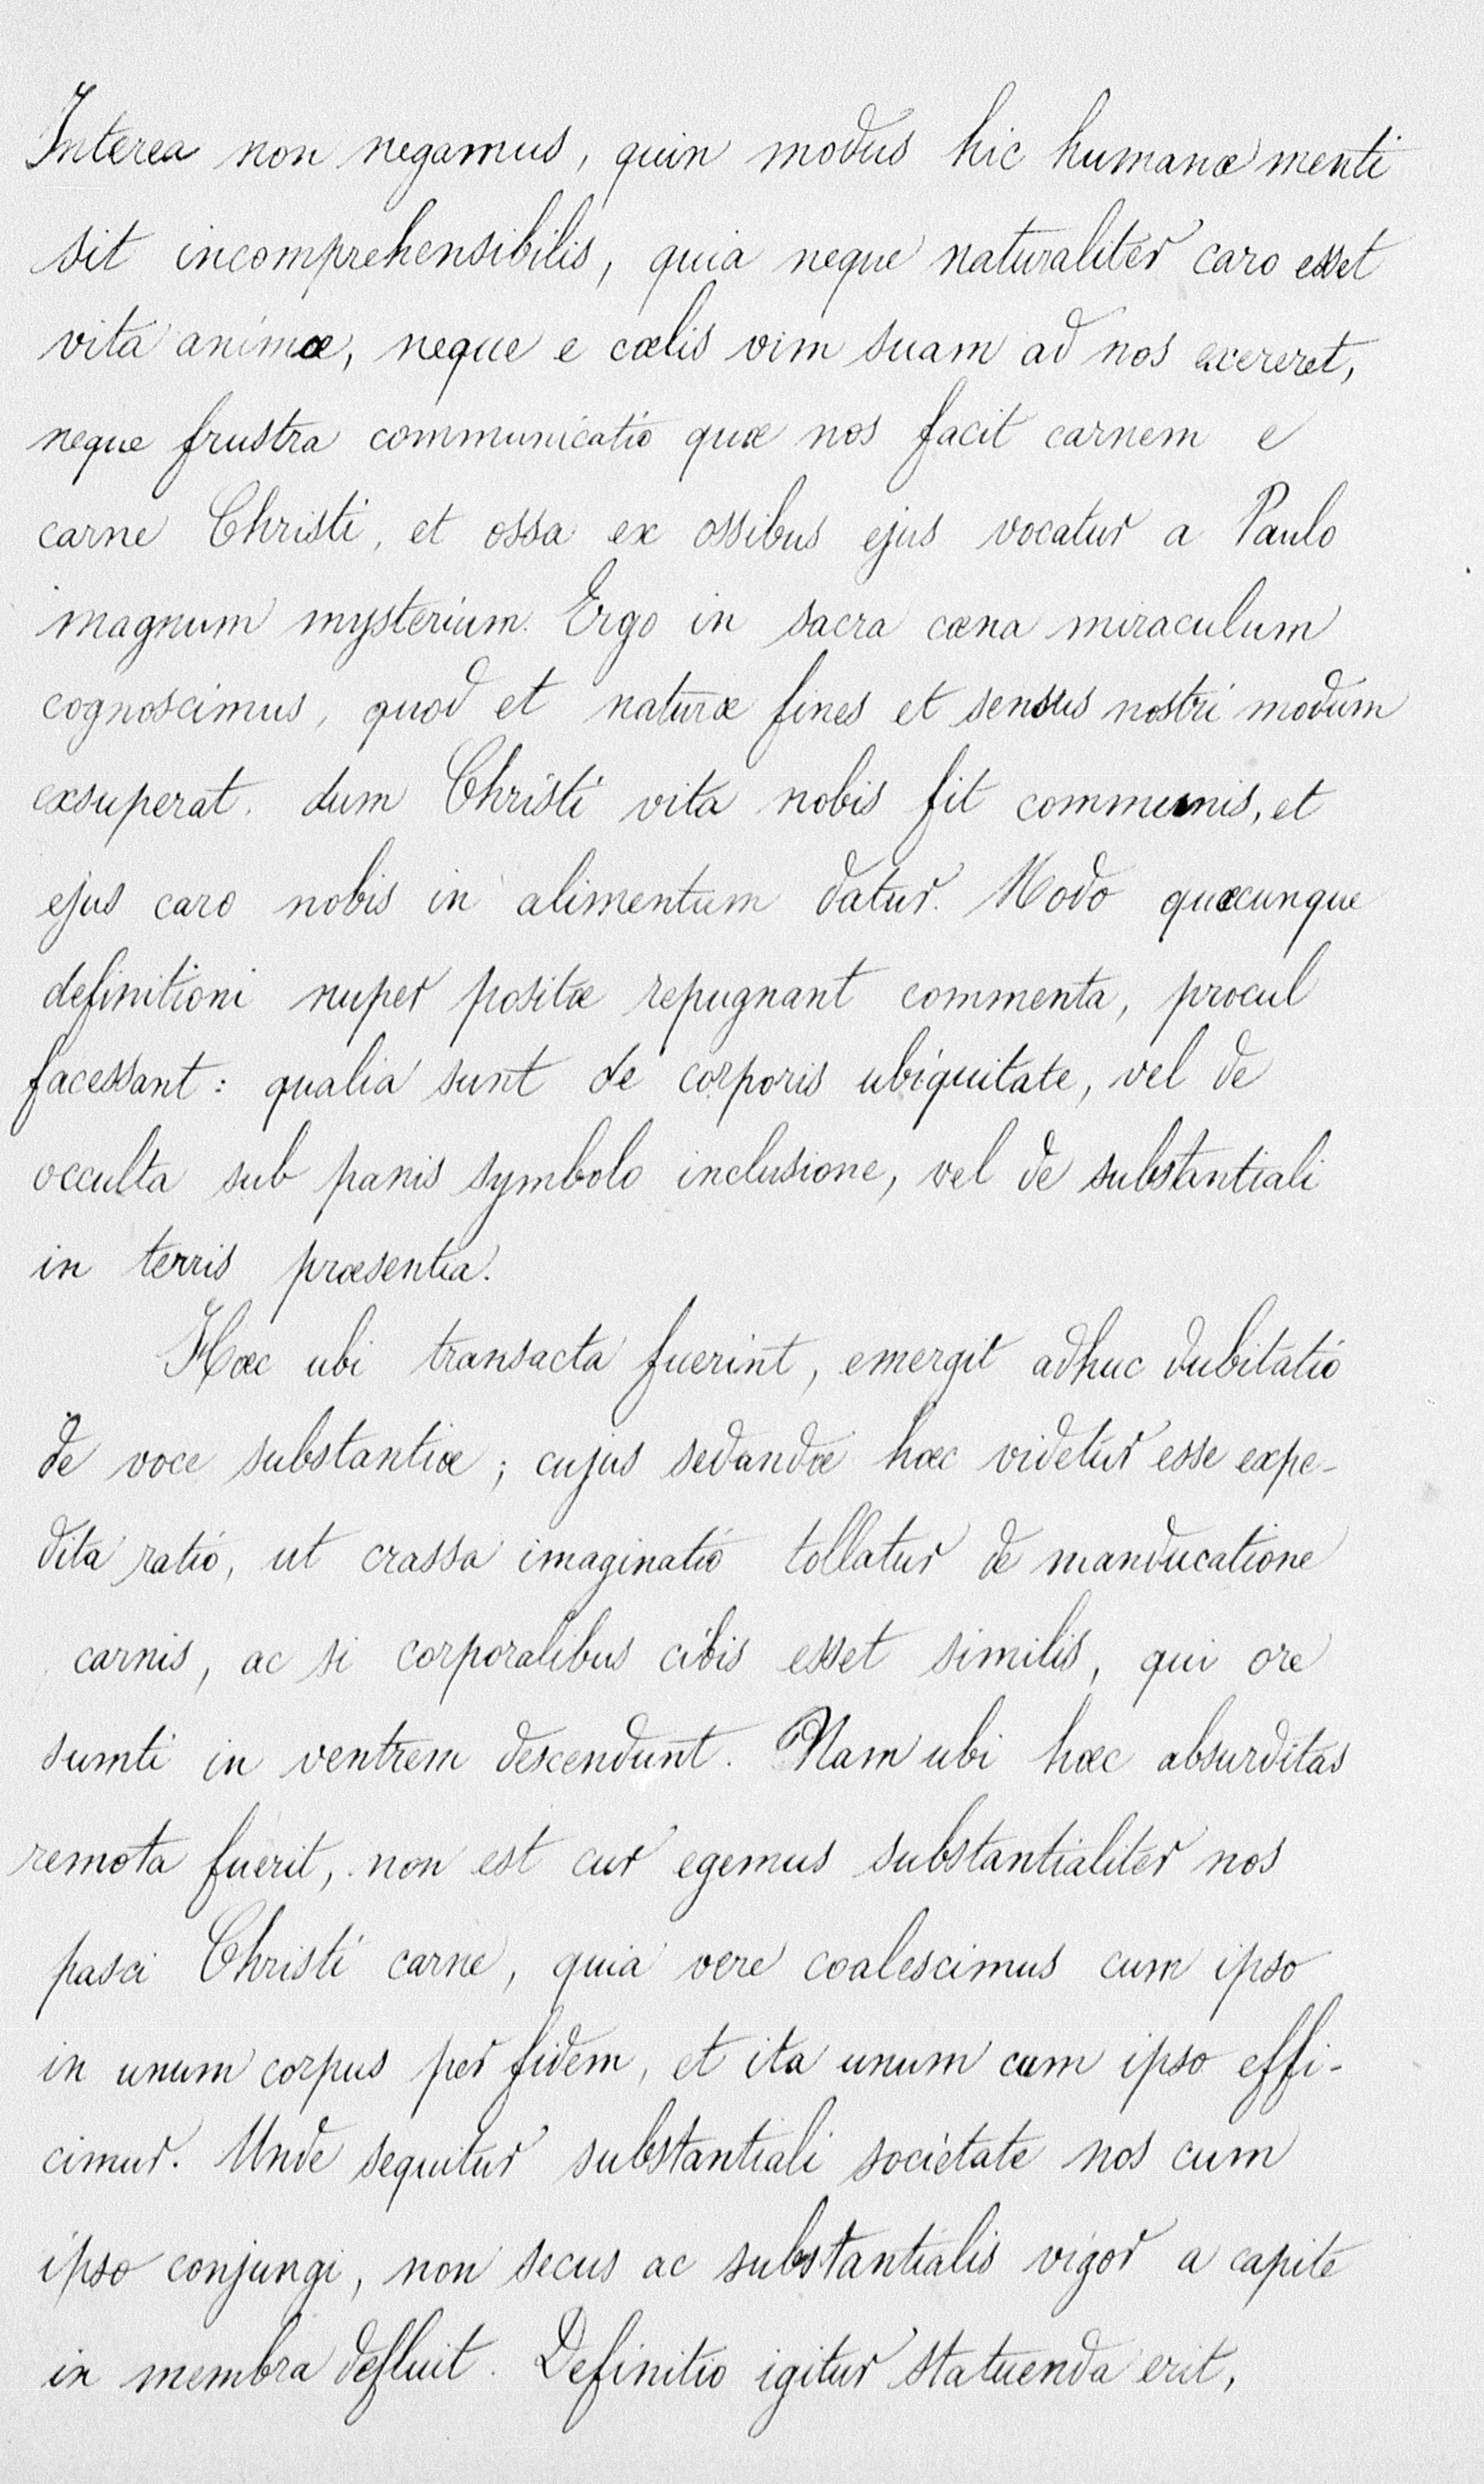 Interea non negamus, quin modus hic humanæ menti
sit incomprehensibilis, quia neque naturaliter caro esset
vita animæ, neque e cœlis vim suam ad nos exereret,
neque frustra communicatio quæ nos facit carnem e
carne Christi, et ossa ex ossibus ejus vocatur a Paulo
magnum mysterium. Ergo in sacra cœna miraculum
cognoscimus, quod et naturæ fines et sensus nostri modum
exsuperat. dum Christi vita nobis fit communis, et
ejus caro nobis in alimentum datur. Modo quæcunque
definitioni nuper positæ repugnant commenta, procul
facessant: qualia sunt de corporis ubiquitate, vel de
occulta sub panis symbolo inclusione, vel de substantiali
in terris præsentia.
Hæc ubi transacta fuerint, emergit adhuc dubitatio
de voce substantiæ; cujus sedandæ hæc videtur esse expe-
dita ratio, ut crassa imaginatio tollatur de manducatione
carnis, ac si corporalibus cibis esset similis, qui ore
sumti in ventrem descendunt. Nam ubi hæc absurditas
remota fuerit, non est cur egemus substantialiter nos
pasci Christi carne, quia vere coalescimus cum ipso
in unum corpus per fidem, et ita unum cum ipso effi-
cimur. Unde sequitur substantiali societate nos cum
ipso conjungi, non secus ac substantialis vigor a capite
in membra defluit. Definitio igitur statuenda erit,